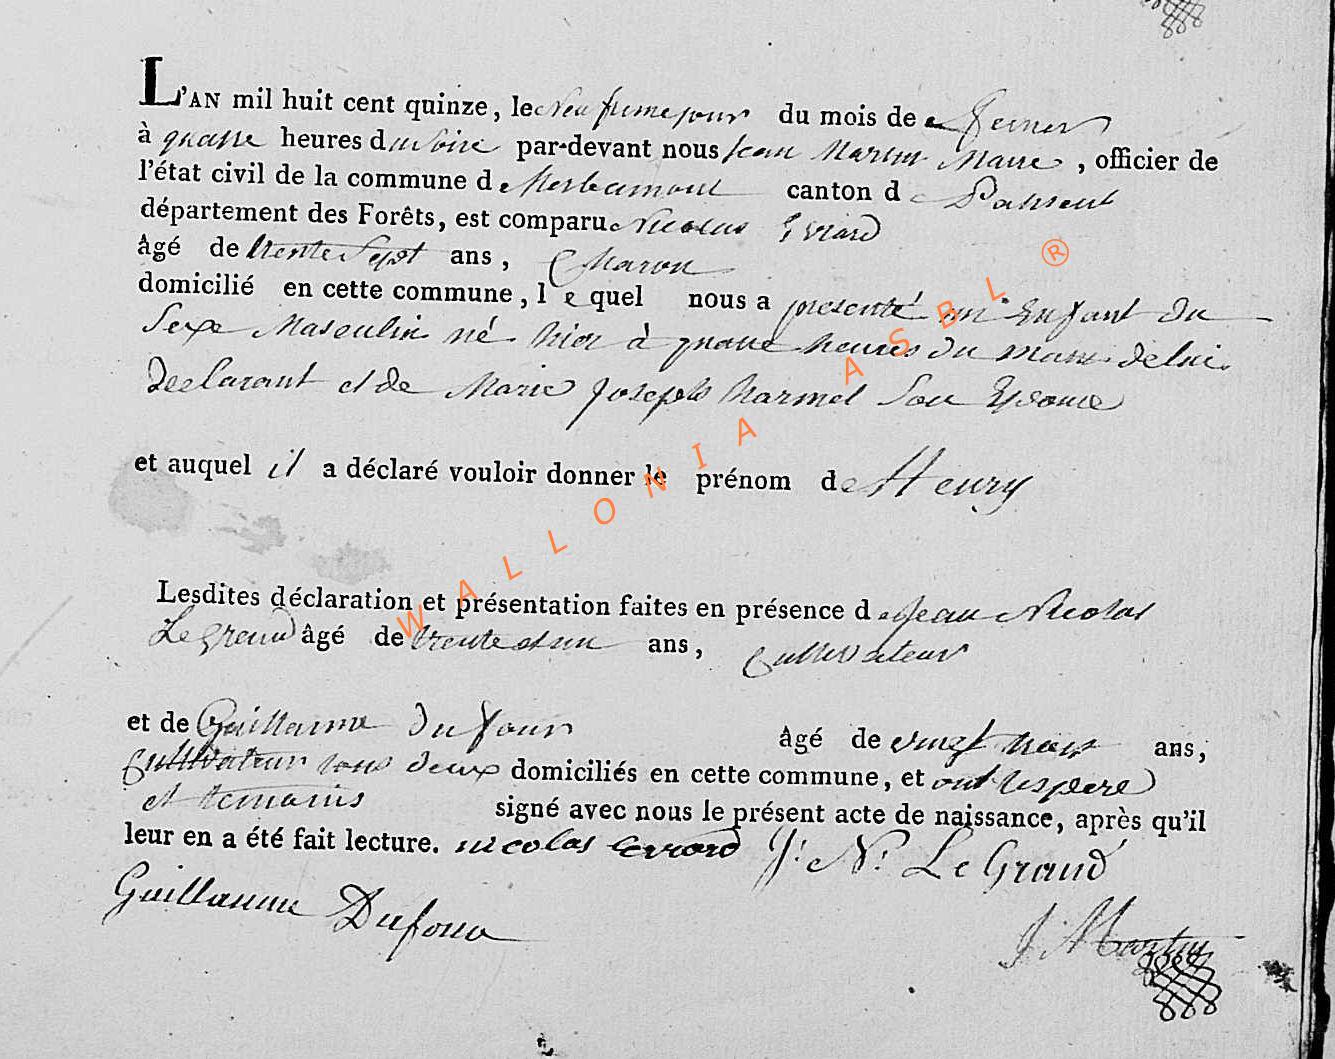 L'AN mil huit cent quinze, le Neufieme jour du mois de fevrier
à quatre heures du Soire par-devant nous Jean Martin Maire, officier de
l'état civil de la commune de canton de
département des Forêts, est comparu Nicolas Evrard
âgé de trente Sept ans,
domicilié en cette commune, lequel nous a presenté un Enfant du
Sexe Masculin né hier à quatre heures du matin de lui
Declarant et de Marie Joseph harmel Son Epouse
et auquel il a déclaré vouloir donner le prénom de Henry
Lesdites déclaration et présentation faites en présence de Jean Nicolas
Le Grand âgé de trente et un ans, Cultivateur
et de Guillaume Dufour âgé de vingt trois ans,
Cultivateur tous deux domiciliés en cette commune, et ont les pere
et temoins signé avec nous le présent acte de naissance, après qu'il
leur en a été fait lecture. nicolas evrard J. N. Le Grand
Guillaume Dufour
J. Martin
WALLONIA ASBL ®